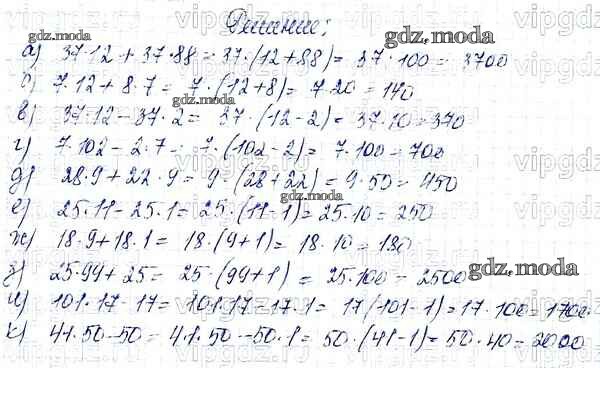 Решение:
а) 37·12 + 37·88 = 37·(12+88) = 37·100 = 3700
б) 7·12 + 8·7 = 7·(12+8) = 7·20 = 140
в) 37·12 - 37·2 = 37·(12-2) = 37·10 = 370
г) 7·102 - 2·7 = 7·(102-2) = 7·100 = 700
д) 28·9 + 22·9 = 9·(28+22) = 9·50 = 450
е) 25·11 - 25·1 = 25·(11-1) = 25·10 = 250
ж) 18·9 + 18·1 = 18·(9+1) = 18·10 = 180
з) 25·99 + 25 = 25·(99+1) = 25·100 = 2500
и) 101·17 - 17 = 101·17 - 17·1 = 17(101-1) = 17·100 = 1700
к) 41·50 - 50 = 41·50 - 50·1 = 50·(41-1) = 50·40 = 2000
gdz.moda
gdz.moda
gdz.moda
gdz.moda
gdz.moda
gdz.moda
vipgdz.ru